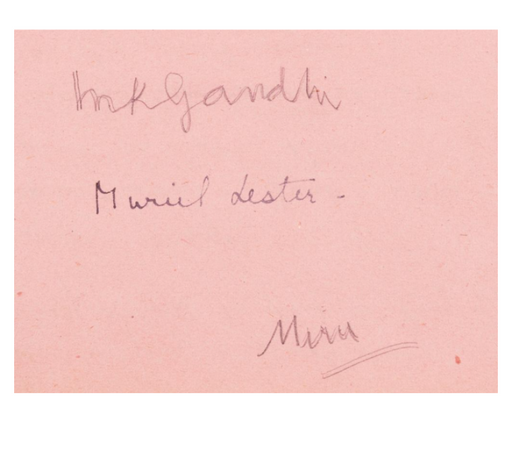 MKGandhi
Muriel Lester -
Mira